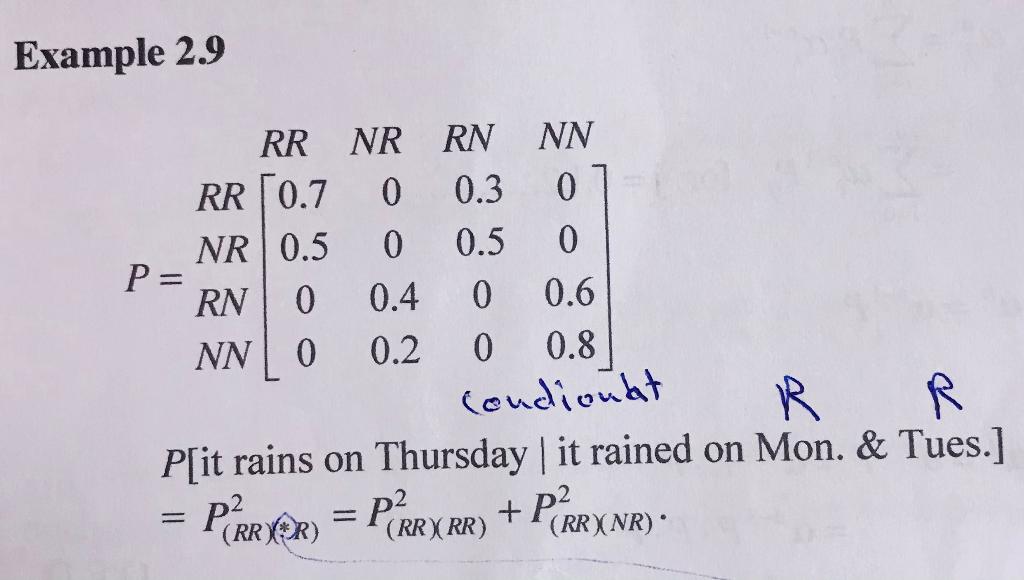 Example 2.9
RR NR RN NN
RR 0.7 0 0.3 0
NR 0.5 0 0.5 0
P =
RN 0 0.4 0 0.6
NN 0 0.2 0 0.8
condiounlt R R
P[it rains on Thursday | it rained on Mon. & Tues.]
= P²(RR)(*R) = P²(RR)(RR) + P²(RR)(NR).